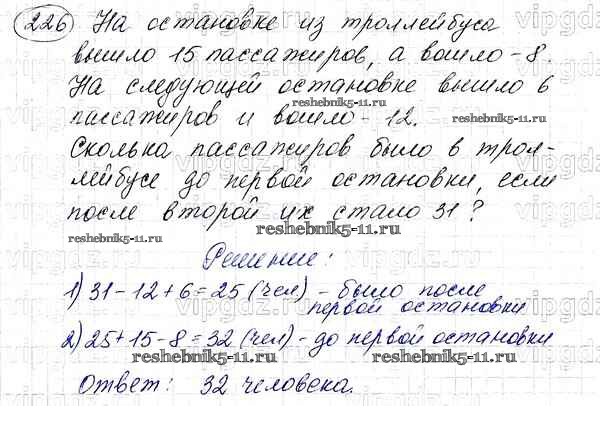 226 На остановке из троллейбуса
вышло 15 пассажиров, а вошло - 8.
На следующей остановке вышло 6
reshebnik5-11.ru
пассажиров и вошло - 12.
reshebnik5-11.ru
Сколька пассажиров было в трол-
лейбусе до первой остановки, если
после второй их стало 31?
reshebnik5-11.ru
reshebnik5-11.ru
Решение:
1) 31 - 12 + 6 = 25 (чел) - было после
первой остановки
2) 25 + 15 - 8 = 32 (чел) - до первой остановки
reshebnik5-11.ru
reshebnik5-11.ru
Ответ: 32 человека.